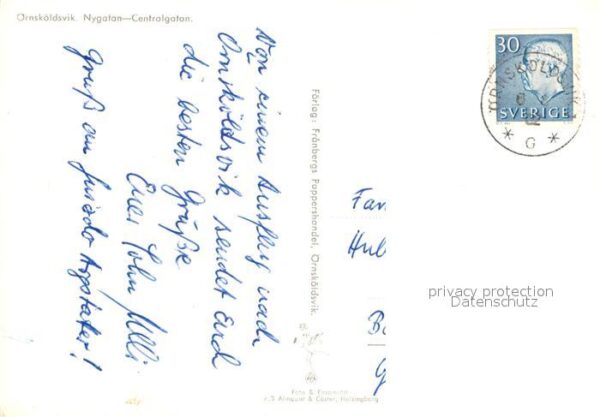 Örnsköldsvik. Nygatan—Centralgatan.
Von einem Ausflug nach
Örnsköldsvik sendet Euch
die besten Grüße
Euer Sohn Ulli
Gruß an
Förlag: Frånbergs Pappershandel, Örnsköldsvik.
Foto & Ensamrätt
A/B Almquist & Cöster, Helsingborg
30
SVERIGE
ÖRNSKÖLDSVIK 1
* G *
Fam
Hub
privacy protection
Datenschutz